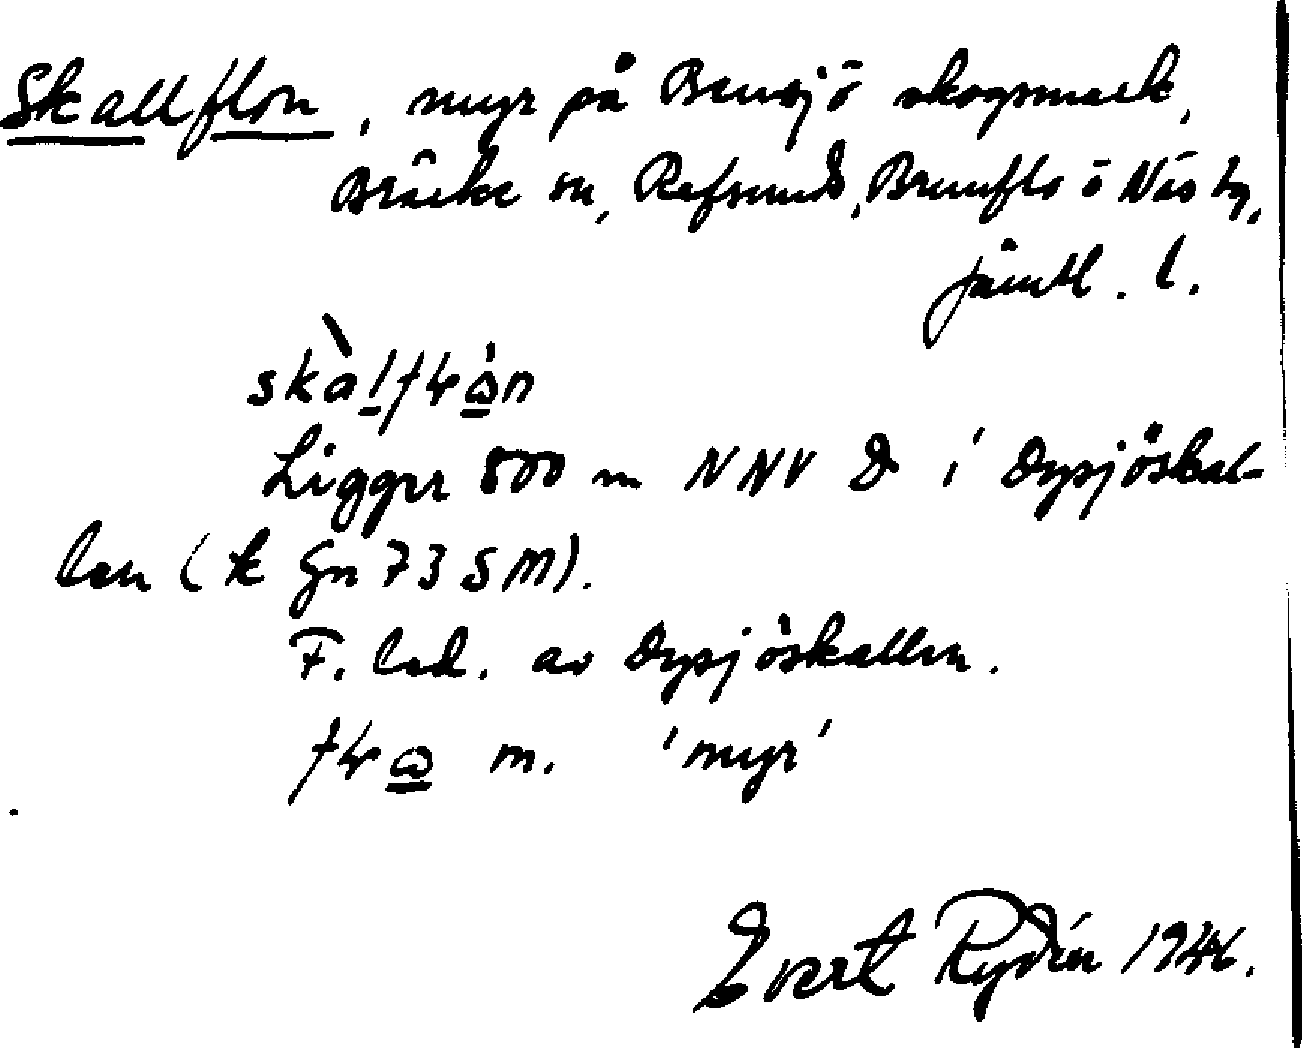 Skallflon, myr på Bensjö skogsmark,
Bräcke sn, Refsunds, Brunflo o Näs tg,
Jämtl. l.
Ligger 800 m NNV D i Dysjöskal-
len (k Gn 73 S M).
F. led. av Dysjöskallen.
m. 'myr'
Evert Rydén 1946.